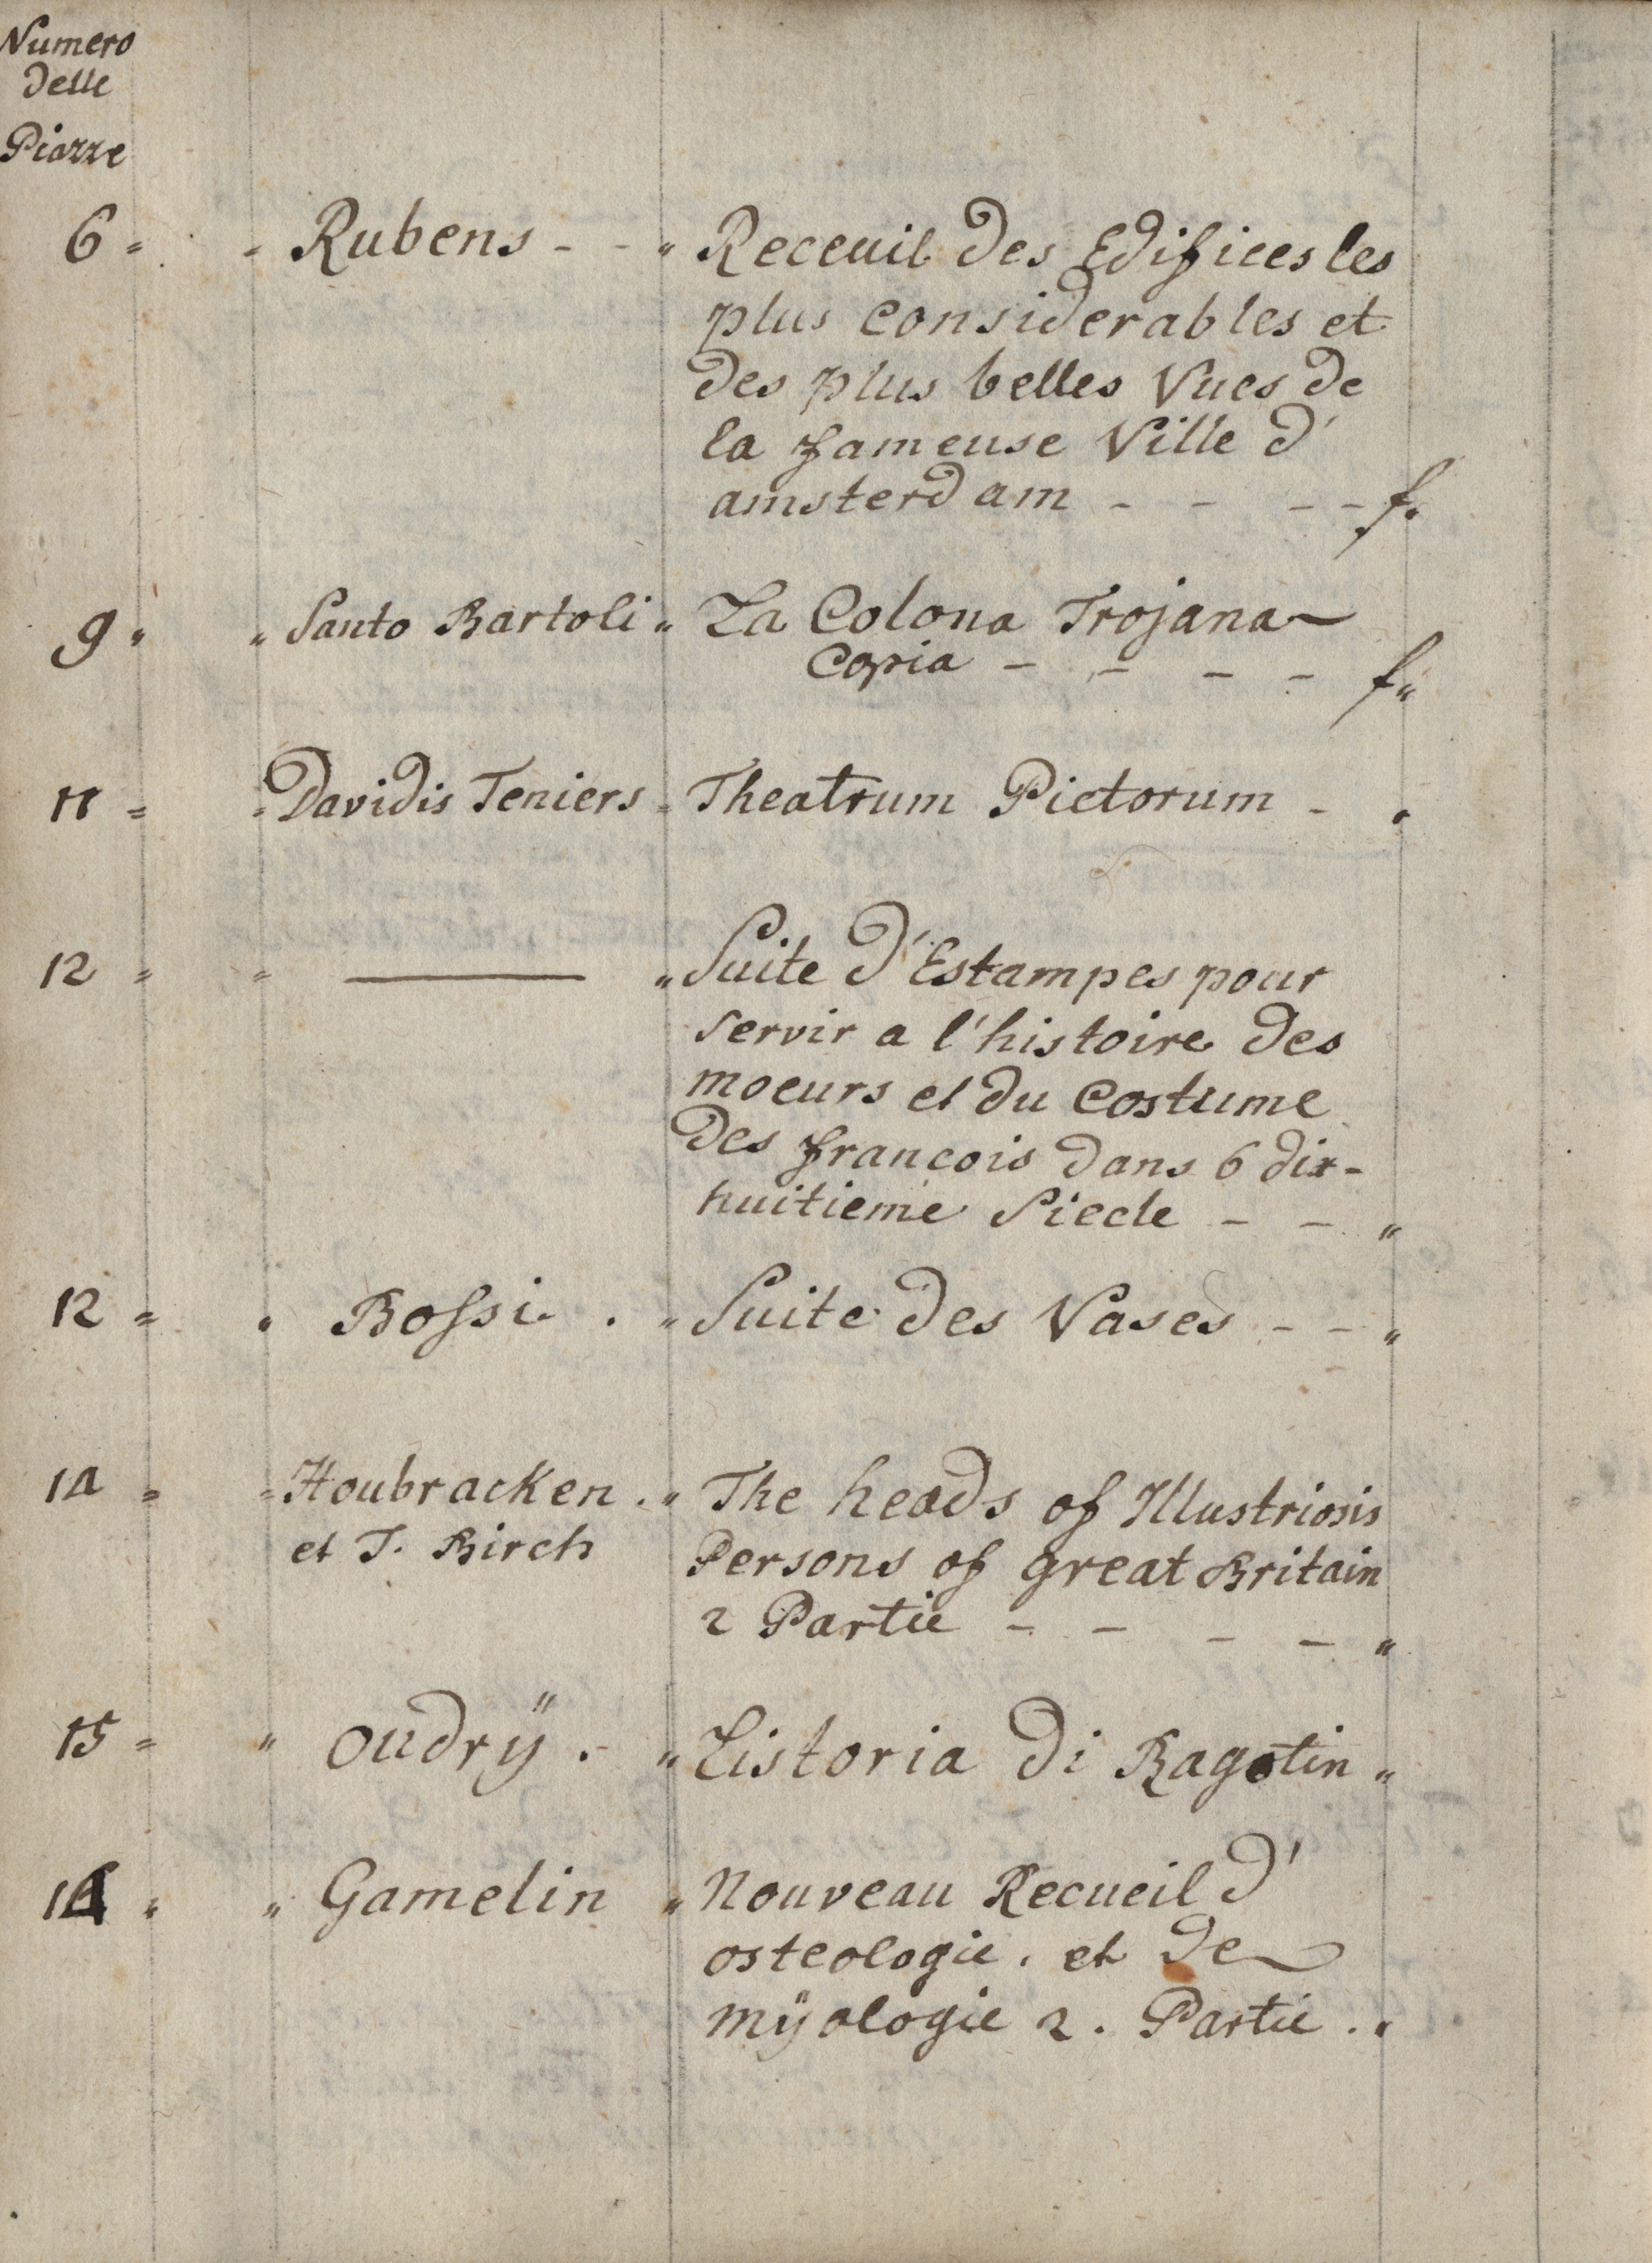 Numero
delle
Piazze
6 = - Rubens - - " Receuil des Edifices les
plus considerables et
des plus belles Vues de
la fameuse Ville d'
amsterdam - - - - f.
9 " " Santo Bartoli " La Colona Trojana ~
Copia - - - - f"
11 = = Davidis Teniers = Theatrum Pictorum - .
12 = = —— " Suite d'Estampes pour
servir a l'histoire des
moeurs et du Costume
des francois dans 6 dix-
huitieme Siecle - - "
12 = " Bossi . . " Suite des Vases - - "
14 = = Houbracken . " The heads of Illustriosis
et T. Birch Persons of great Britain
2 Partie - - - - "
15 = " oudrÿ . - " Listoria di Ragotin "
" " Gamelin " Nouveau Recueil d'
osteologie . et de ~
mÿologie 2 . Partie . "